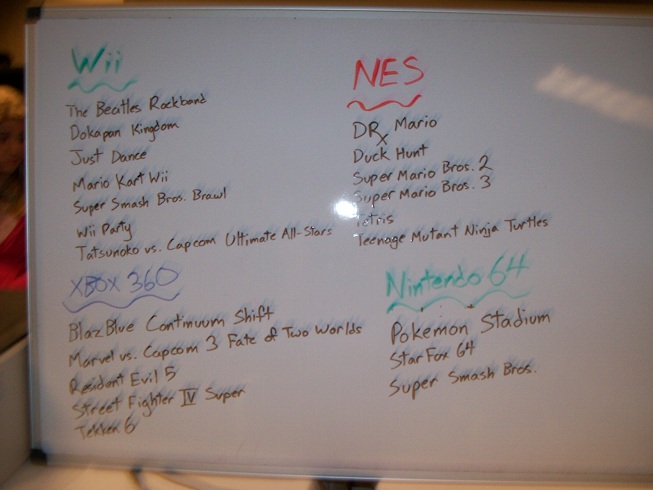 Wii
The Beatles Rockband
Dokapon Kingdom
Just Dance
Mario Kart Wii
Super Smash Bros. Brawl
Wii Party
Tatsunoko vs. Capcom Ultimate All-Stars
XBOX 360
BlazBlue Continuum Shift
Marvel vs. Capcom 3 Fate of Two Worlds
Resident Evil 5
Street Fighter IV Super
Tekken 6
NES
DRx Mario
Duck Hunt
Super Mario Bros. 2
Super Mario Bros. 3
Tetris
Teenage Mutant Ninja Turtles
Nintendo 64
Pokemon Stadium
StarFox 64
Super Smash Bros.